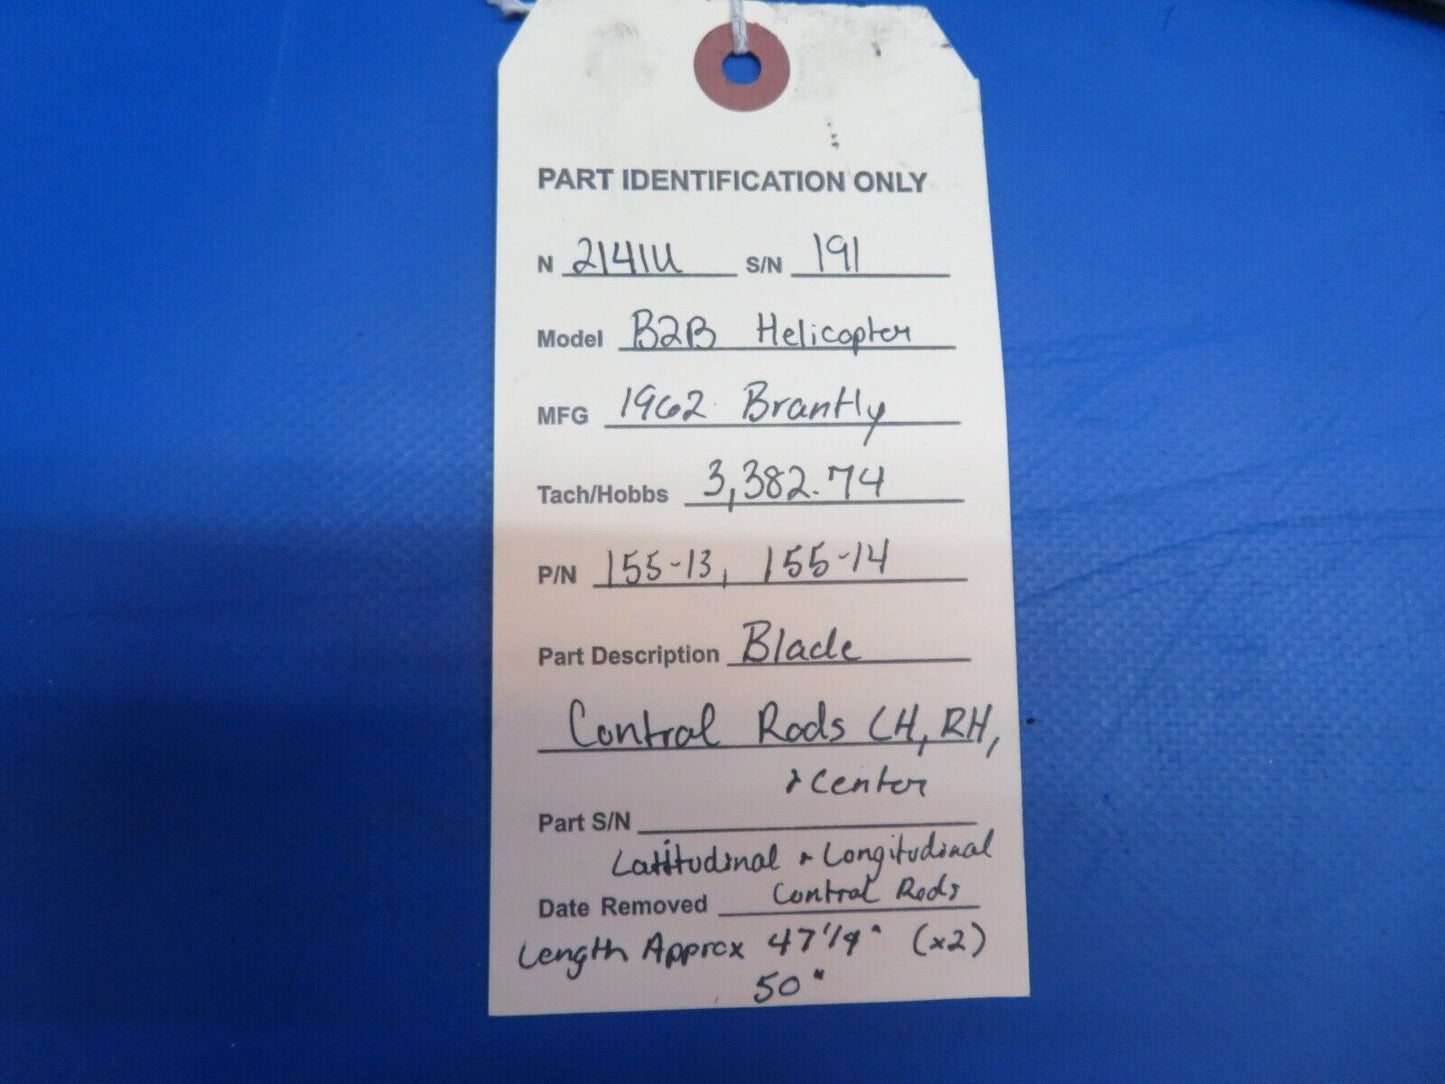 PART IDENTIFICATION ONLY
N 2141U S/N 191
Model B2B Helicopter
MFG 1962 Brantly
Tach/Hobbs 3,382.74
P/N 155-13, 155-14
Part Description Blade
Control Rods LH, RH,
& Center
Part S/N
Latitudinal & Longitudinal
Control Rods
Date Removed
Length Approx 47 1/4" (x2)
50"